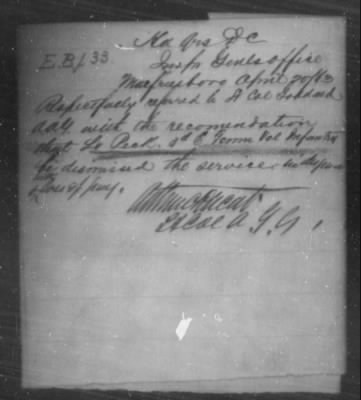 Hd Qrs D C
E.B/33. Insp Genls office
Murfreesboro April 20/63
Respectfully referred to Lt Col Goddard
AAG with the recommendation
that Lt Peck. 3d E Tenn Vol Infantry
be dismissed the service in disgrace
& loss of pay.
Lt Col A I G